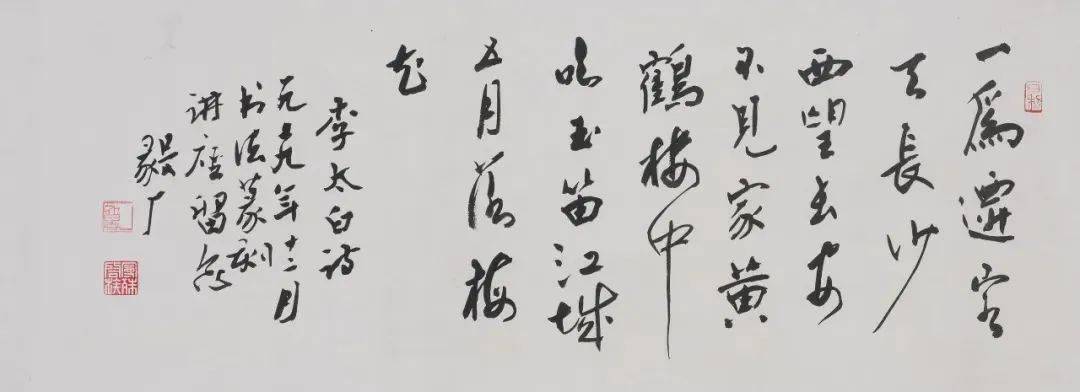 一為遷客
去長沙
西望长安
不見家黃
鶴楼中
吹玉笛江城
五月落梅
花
李太白诗
年十二月
书法篆刻
讲座留念
毅厂